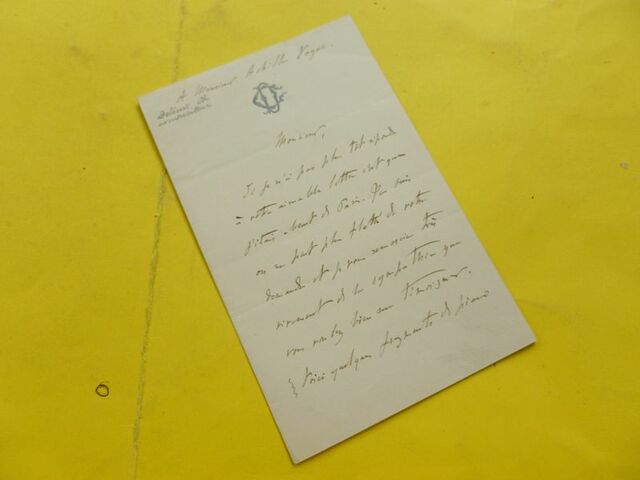 A Monsieur Achille Vogue.
Monsieur,
Si je n'ai pas plus tôt répondu
à votre aimable lettre c'est que
j'étais absent de Paris. J'en suis
on ne peut plus flatté de votre
demande et je vous remercie très
vivement de la sympathie que
vous voulez bien me témoigner.
Voici quelques fragments de